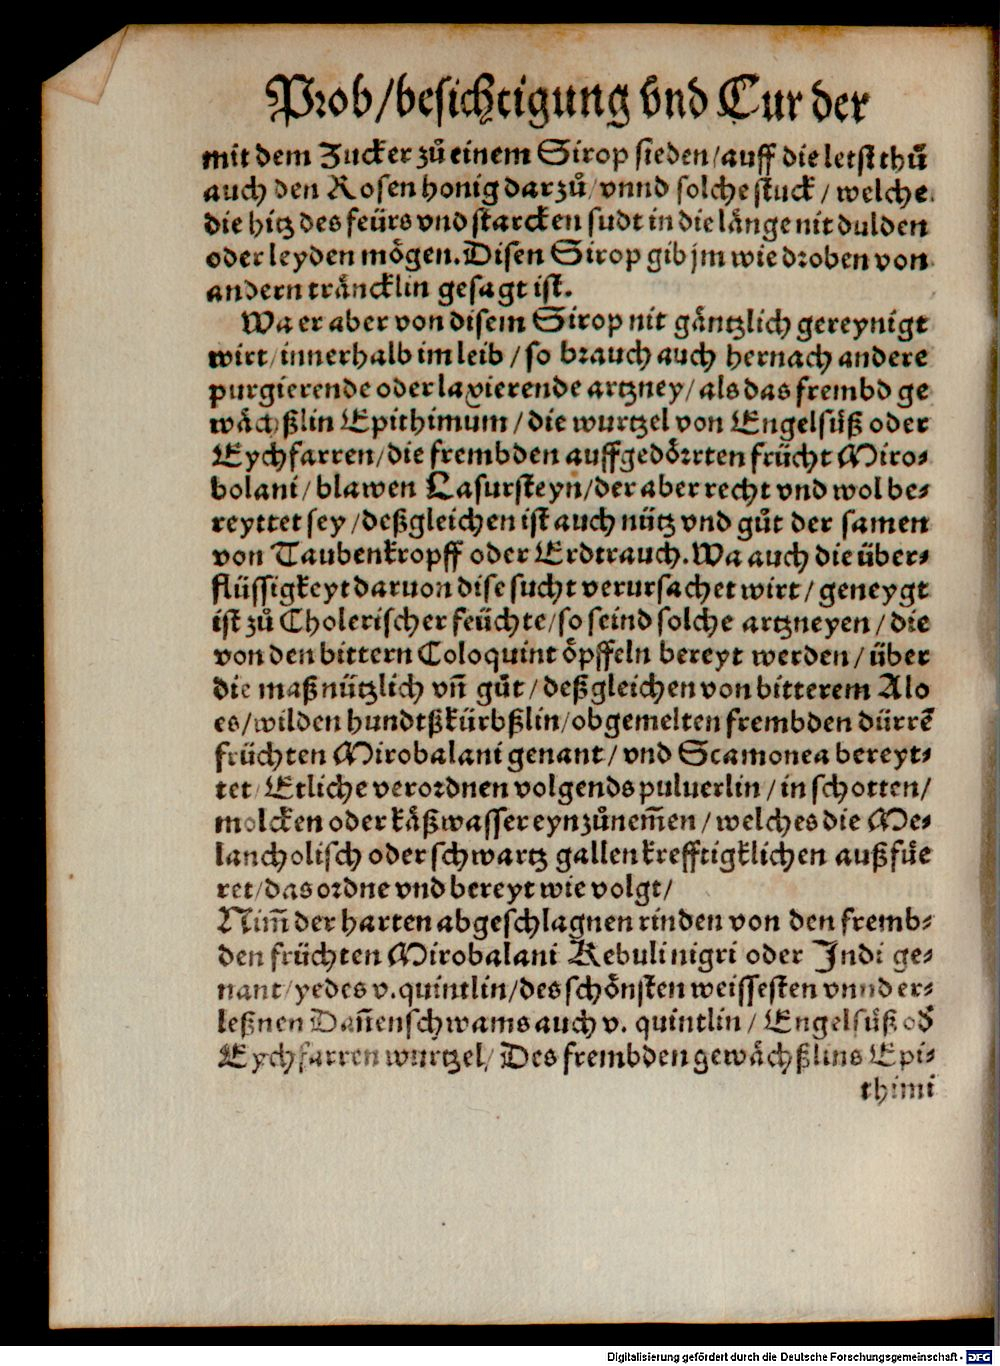 Prob/besichtigung vnd Cur der
mit dem Zucker zů einem Sirop sieden/auff die letst thů
auch den Rosenhonig darzů/vnnd solche stuck/welche
die hitz des feürs vnd starcken sudt in die länge nit dulden
oder leyden mögen. Disen Sirop gib jm wie droben von
andern träncklin gesagt ist.
Wa er aber von disem Sirop nit gäntzlich gereynigt
wirt/innerhalb im leib/so brauch auch hernach andere
purgierende oder laxierende artzney/als das frembd ge
wächßlin Epithimum/die wurtzel von Engelsüß oder
Eychfarren/die frembden auffgedörrten frücht Miro⸗
bolani/blawen Lasursteyn/der aber recht vnd wol be⸗
reyttet sey/deßgleichen ist auch nütz vnd gůt der samen
von Taubenkropff oder Erdtrauch. Wa auch die über⸗
flüssigkeyt daruon dise sucht verursachet wirt/geneygt
ist zů Cholerischer feüchte/so seind solche artzneyen/die
von den bittern Coloquint öpffeln bereyt werden/über
die maß nützlich vñ gůt/deßgleichen von bitterem Alo
es/wilden hundtßkürbßlin/obgemelten frembden dürrē
früchten Mirobalani genant/vnd Scamonea bereyt⸗
tet/Etliche verordnen volgends puluerlin/in schotten/
molcken oder käßwasser eynzůnem̃en/welches die Me⸗
lancholisch oder schwartz gallen krefftigklichen außfüe
ret/das ordne vnd bereyt wie volgt/
Nim̃ der harten abgeschlagnen rinden von den fremb⸗
den früchten Mirobalani Kebuli nigri oder Indi ge⸗
nant/yedes v. quintlin/des schönsten weissesten vnnd er⸗
leßnen Dañenschwams auch v. quintlin/Engelsüß od̕
Eychfarren wurtzel/Des frembden gewächßlins Epi⸗
thimi
Digitalisierung gefördert durch die Deutsche Forschungsgemeinschaft - DFG